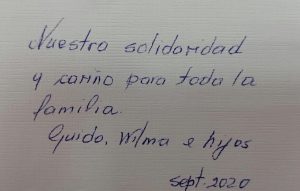 Nuestra solidaridad
y cariño para toda la
familia.
Guido, Wilma e hijos
sept. 2020